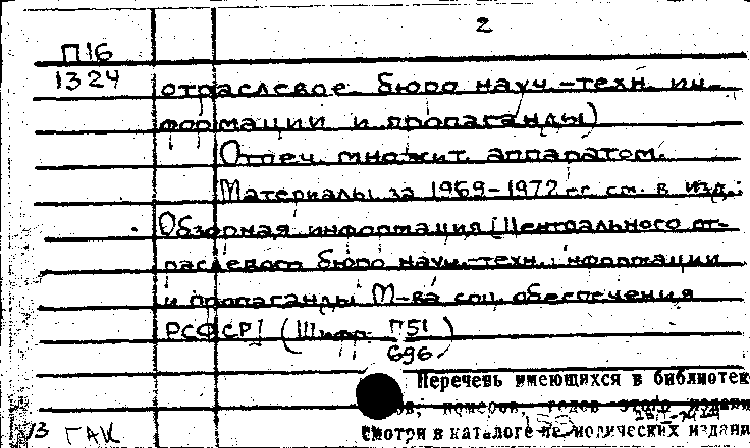 2
П16
1324
отраслевое бюро науч.-техн. ин-
формации и пропаганды)
Отпеч. множит. аппаратом.
Материалы за 1969-1972 гг. см. в изд.:
Обзорная информация [Центрального от-
раслевого бюро науч.-техн. информации
и пропаганды М-ва соц. обеспечения
РСФСР] (Шифр П51
696)
Перечень имеющихся в библиотек
номеров, годов этого издани
Смотри в каталоге периодических издани
13 ГАК